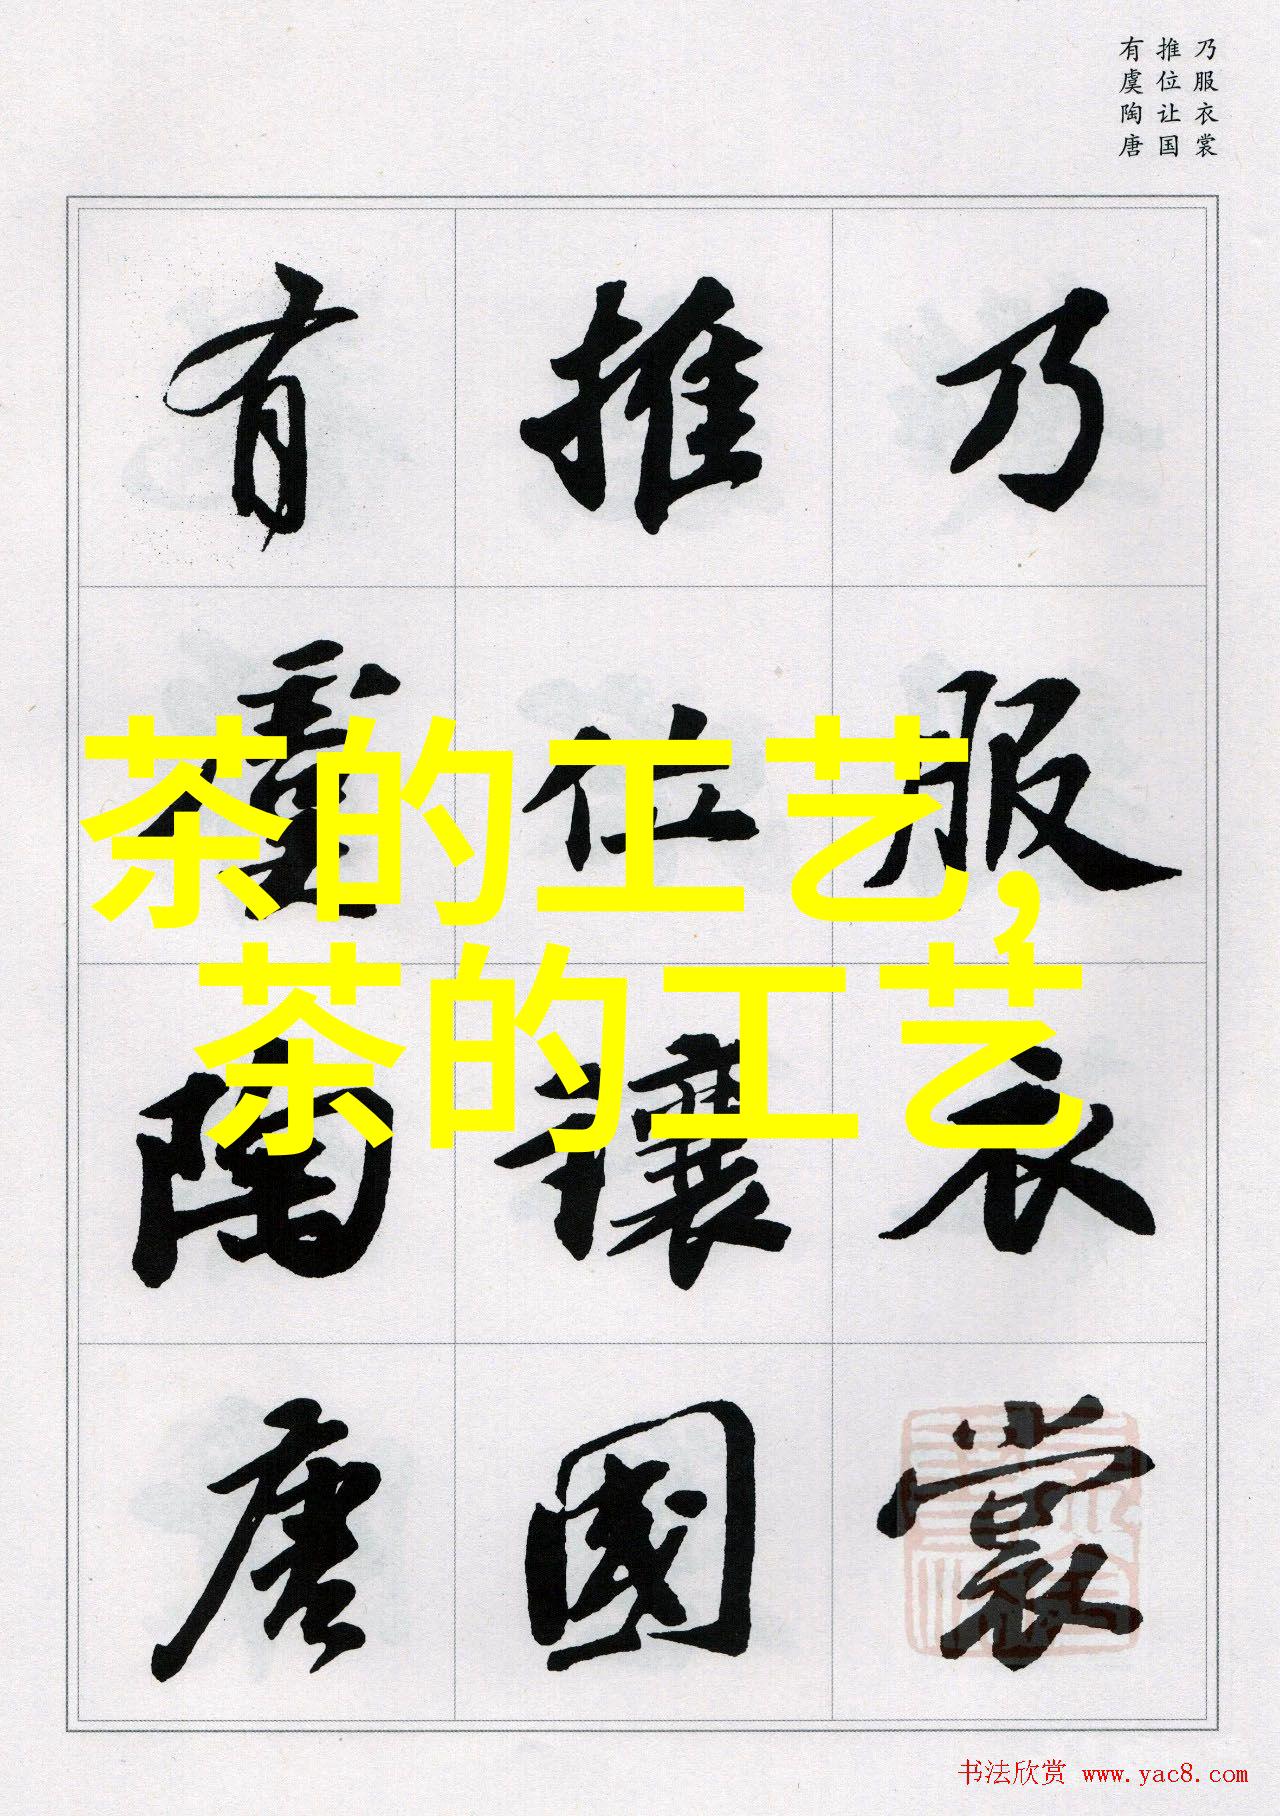 乃服衣裳
推位让国
有虞陶唐
乃服衣裳
推位讓國
有虞陶唐
茶的工艺,
茶的工艺
书法欣赏 www.yac8.com